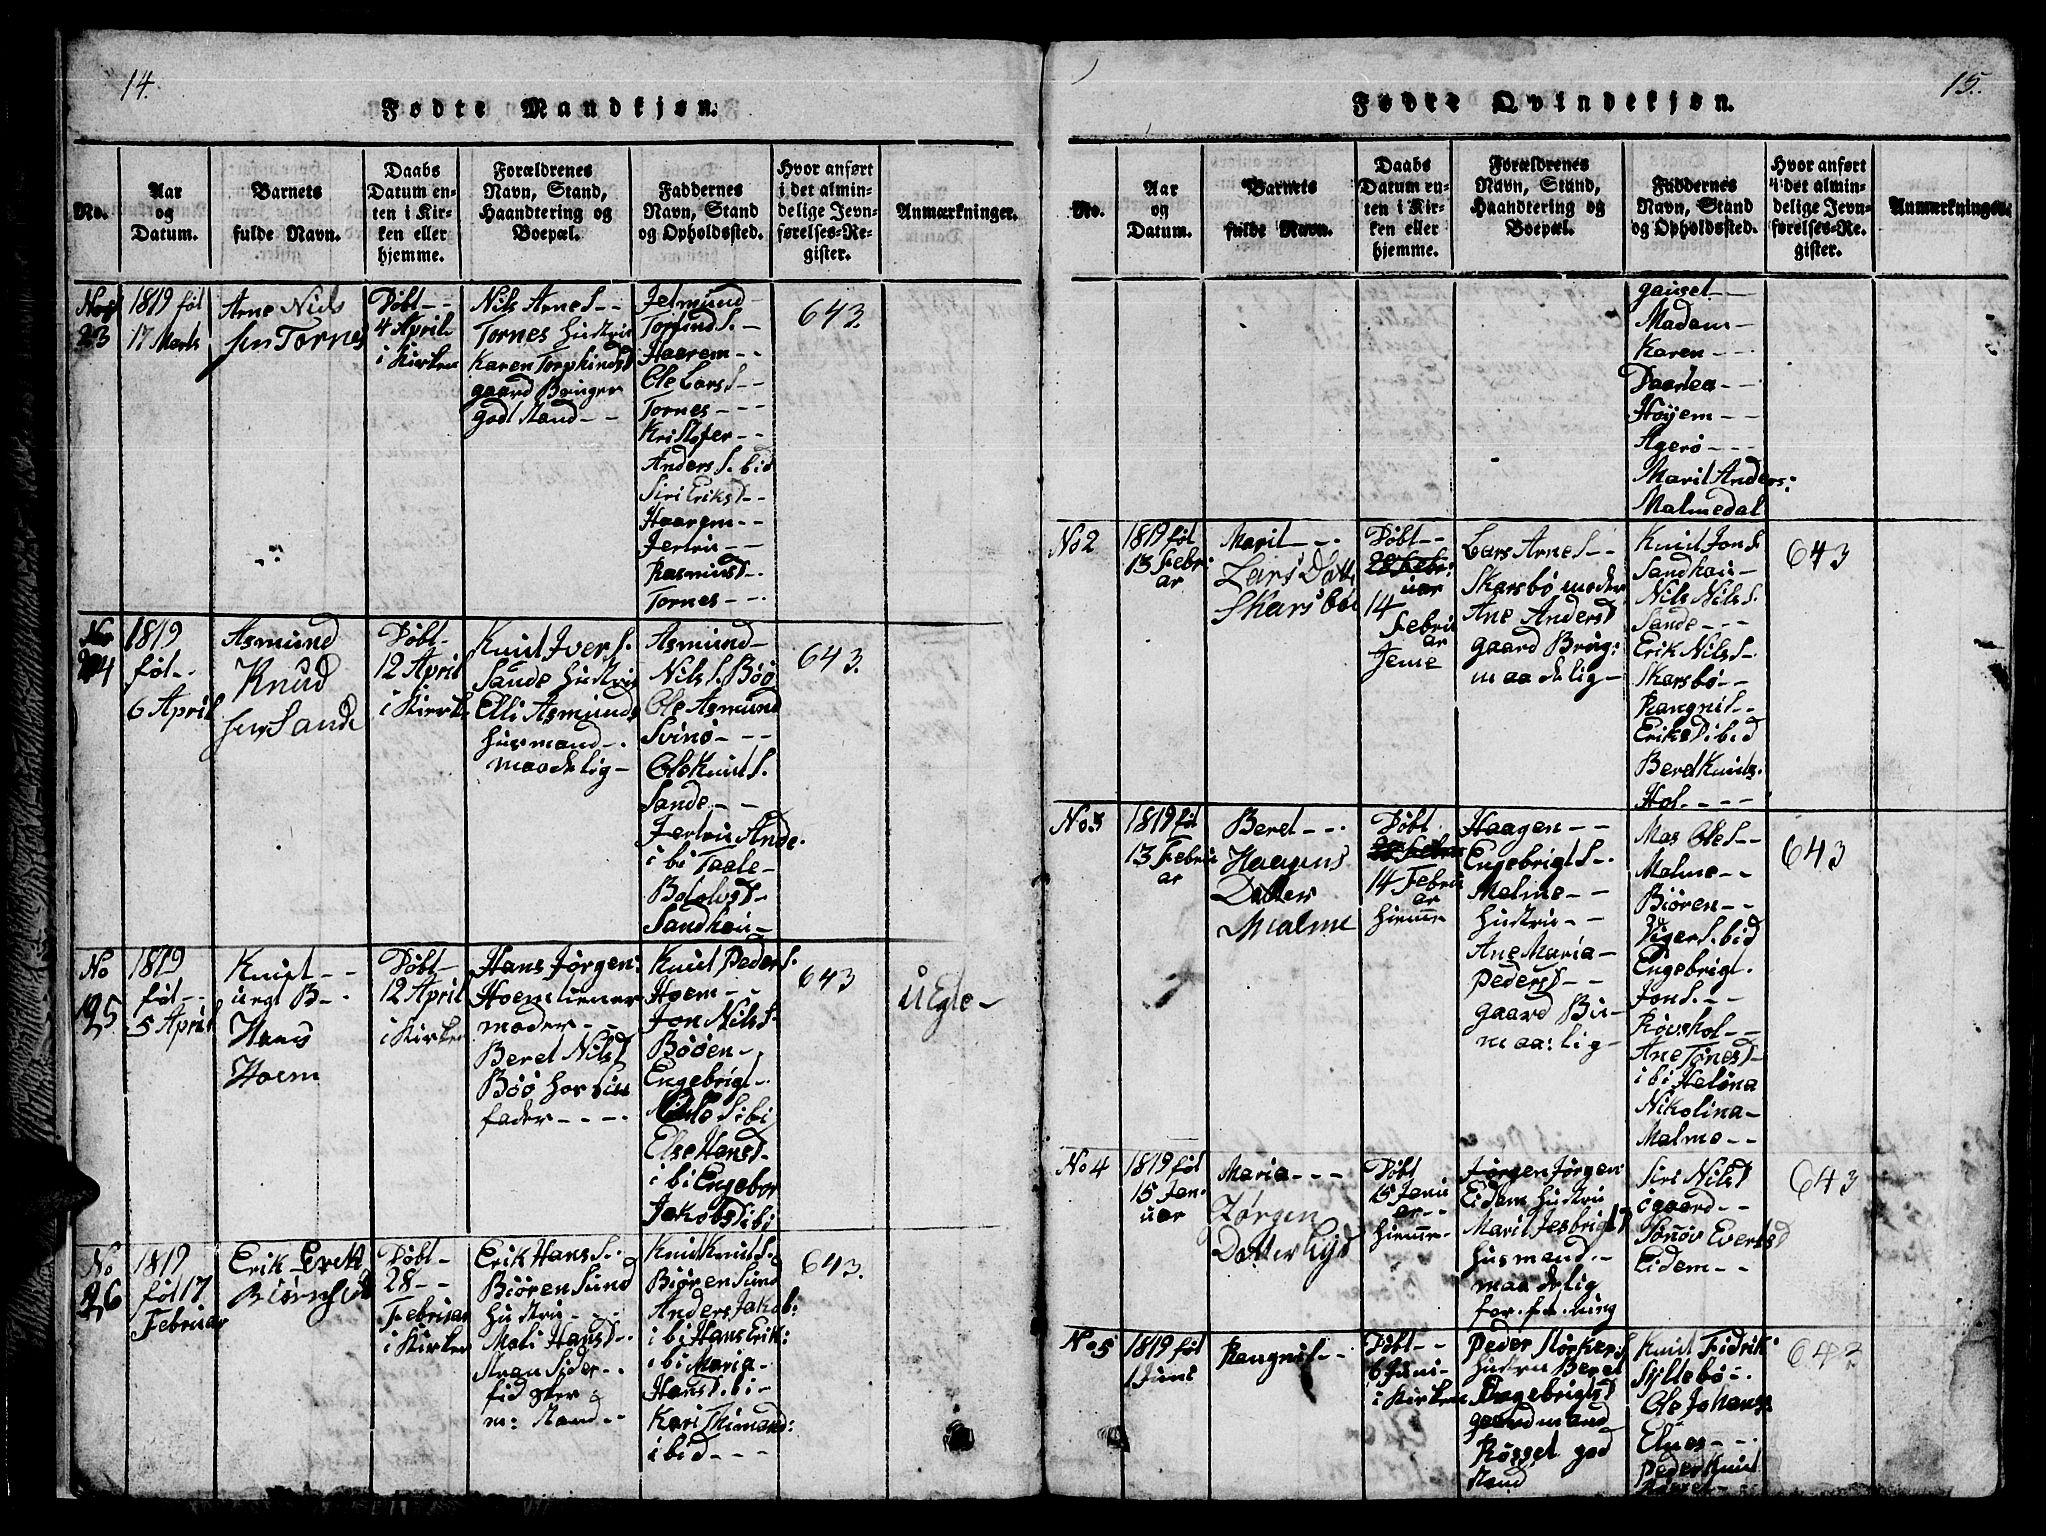 14.
Fødte Mandkjøn.
No.
Aar
og
Datum.
Barnets
fulde Navn.
Daabs
Datum en-
ten i Kir-
ken eller
hjemme.
Forældrenes
Navn, Stand,
Haandtering og
Boepæl.
Faddernes
Navn, Stand
og Opholdssted.
Hvor anført
i det almin-
delige Jevn-
førelses-Re-
gister.
Anmærkninger.
No
23
1819 føt
17 Marts
Arne Niels
sen Tornes
Døbt - -
4 April
i Kirken
Nils Arne S. -
Tornes Hustru
Karen Torpkinds D
gaard Bruger
god Stand - -
Jetmund -
Torkind S. -
Haarem - -
Ole Lars S - -
Tornes - - -
Kristofer - -
Anders S. bid
Siri Eriks D - -
Haarem - -
Jertru - -
Rasmus D - .
Tornes - - .
643.
No
24
1819
føt - .
6 April
Asmund
Knud
sen Sande
Døbt -
12 April
i Kirke
Knut Iver S.
Sande Hustru
Elli Asmunds
husmand - .
maadelig -
Asmund -
Nils S. Böö
Ole Asmund
Svinö - - -
Ole Knut S.
Sande - -
Jertru Ande.
i bi Taale -
Botolvs D -
Sandhou -
643.
No
25
1819
føt - -
5 April
Knut - -
uegt B - .
Hans
Hoem
Døbt -
12 April
i Kirken
Hans Jørgen:
Hoem tiener
moder - -
Beret Nils D
Böö hor Sin
fader - - - .
Knut Peder S.
Hoem - -
Jon Nils S.
Böøen -
Engebrigt - .
Nils S. i bi
Else Hans D -
i bi Engebor
Jakobs D i bi
643
UEgte -
No
26
1819
føt 17
Februar
Erik Erik
Biörnsund
Døbt -
28 - -
Februar
i Kirken
Erik Hans S. .
Biören Sund
Hustru - .
Mali Hans D - .
Stran Sider - -
fidsker
m: Stand - -
Knut Knut S.
Biören Sund
Anders Jakob:
i bi Hans Erik:
i bi Maria -
Hans D. bi -
Kari Thimands:
i bid - - -
643.
15.
Fødte Qvindekjøn.
No.
Aar
og
Datum.
Barnets
fulde Navn.
Daabs
Datum en-
ten i Kir-
ken eller
hjemme.
Forældrenes
Navn, Stand,
Haandtering og
Boepæl.
Faddernes
Navn, Stand
og Opholdssted.
Hvor anført
i det almin-
delige Jevn-
førelses-Re-
gister.
Anmærkninger.
gauset - -
Madam -
Karen - - -
Daarlea - -
Höyem - -
Agerö - - -
Marit Anders:
Malmedal
No 2
1819 føt
13 Febru
ar
Marit - - .
Lars Datt
Skarsböe
Døbt - -
28 Febr:
uar
14
Febru
ar
Jeme
Lars Arne S - -
Skarsbö moder
Ane Anders D
gaard Brug:
maadelig -
Knut Jon S.
Sandhou -
Nils Nils S.
Sande - - -
Erik Nils S - .
Skarsbö - -
Rangnil - -
Eriks D i bid
Beret Knuts:
Hol - - - -
643
No. 3
1819 føt
13 Febru
ar
Beret - - .
Haagens
Datter
Malme
Døbt
28 Febru
14 Febru
ar
hieme
Haagen - -
Engebrigt S - .
Malme - -
Hustru - -
Ane Maria -
Peders D - -
gaard Bru -
maa: lig -
Mas Ole S - -
Malme - -
Biören - -
Viger S. bid
Engebrigt.
Jon S. - -
Rövskol - -
Ane Tönes D -
i bi Helöna
Nikolina -
Malmo - -
643
No 4
1819 føt
15 Jan.
uar
Maria - - -
Jørgen
Datter Eyd
Døbt
15 Janu
ar - -
hieme -
Jørgen Jørgen:
Eidem Hustru
Marit Jesbrigt D
Husmand - .
maadelig
for - fa . ning
Siri Nils D
ogaard - -
Sönöv Everts D
Eidem - -
643
No 5
1819 føt
1 Juni
Rangnil - -
Døbt - -
6 Juni -
i Kirken
Peder Storker S.
Hustru Beret
Engebrigts D
gaardmand
Rösset god
Stand
Knut Fidrik:
Syltebö - .
Ole Johans
Elnes - - .
Peder Knut
643